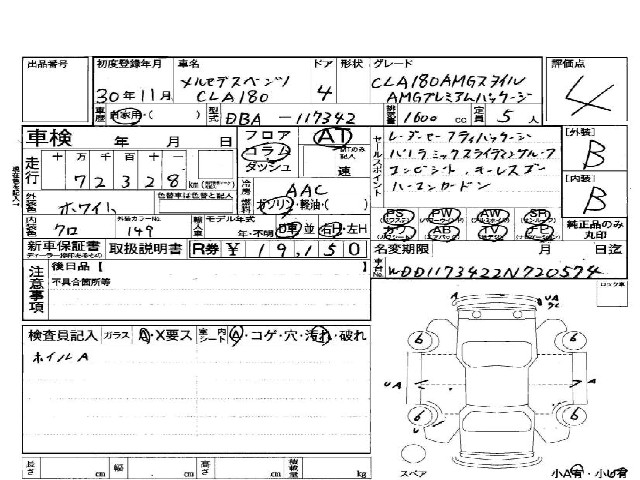 出品番号
初度登録年月 車名 ドア 形状 グレード 評価点
メルセデスベンツ CLA180AMGスタイル
30年11月 CLA180 4 AMGプレミアムパッケージ 4
車歴 自家用・( ) 型式 DBA-117342 排気量 1600 cc 定員 5 人
車検 年 月 日 フロア AT セールスポイント レーダーセーフティパッケージ [外装]
コラム ATのみ記入 パノラミックスライディングルーフ B
走行 十 万 千 百 十 一 ダッシュ 速
7 2 3 2 8 km キーレスゴー
冷房 AAC ハーマンカードン [内装]
外装色 ホワイト 色替車は色替と記入 燃料 ガソリン・軽油・( ) B
PS PW AW SR
内装色 クロ 外装カラーNo. 149 輸入車 モデル年式 年・不明 D車・並 右H・左H カワ AB TV 純正品のみ丸印
新車保証書 取扱説明書 R券 ¥19,150 名変期限 月 日迄
ディーラー捺印あるもの
車台No. WDD1173422N720574
注意事項 後日品【 】 ロック車
不具合箇所等
検査員記入 ガラス A・X要ス 室内シート A・コゲ・穴・汚れ・破れ
ホイルA
A UA
6 6
UA A
6 6
スペア
長さ cm 幅 cm 高さ cm 積載量 kg
小A有・小U有